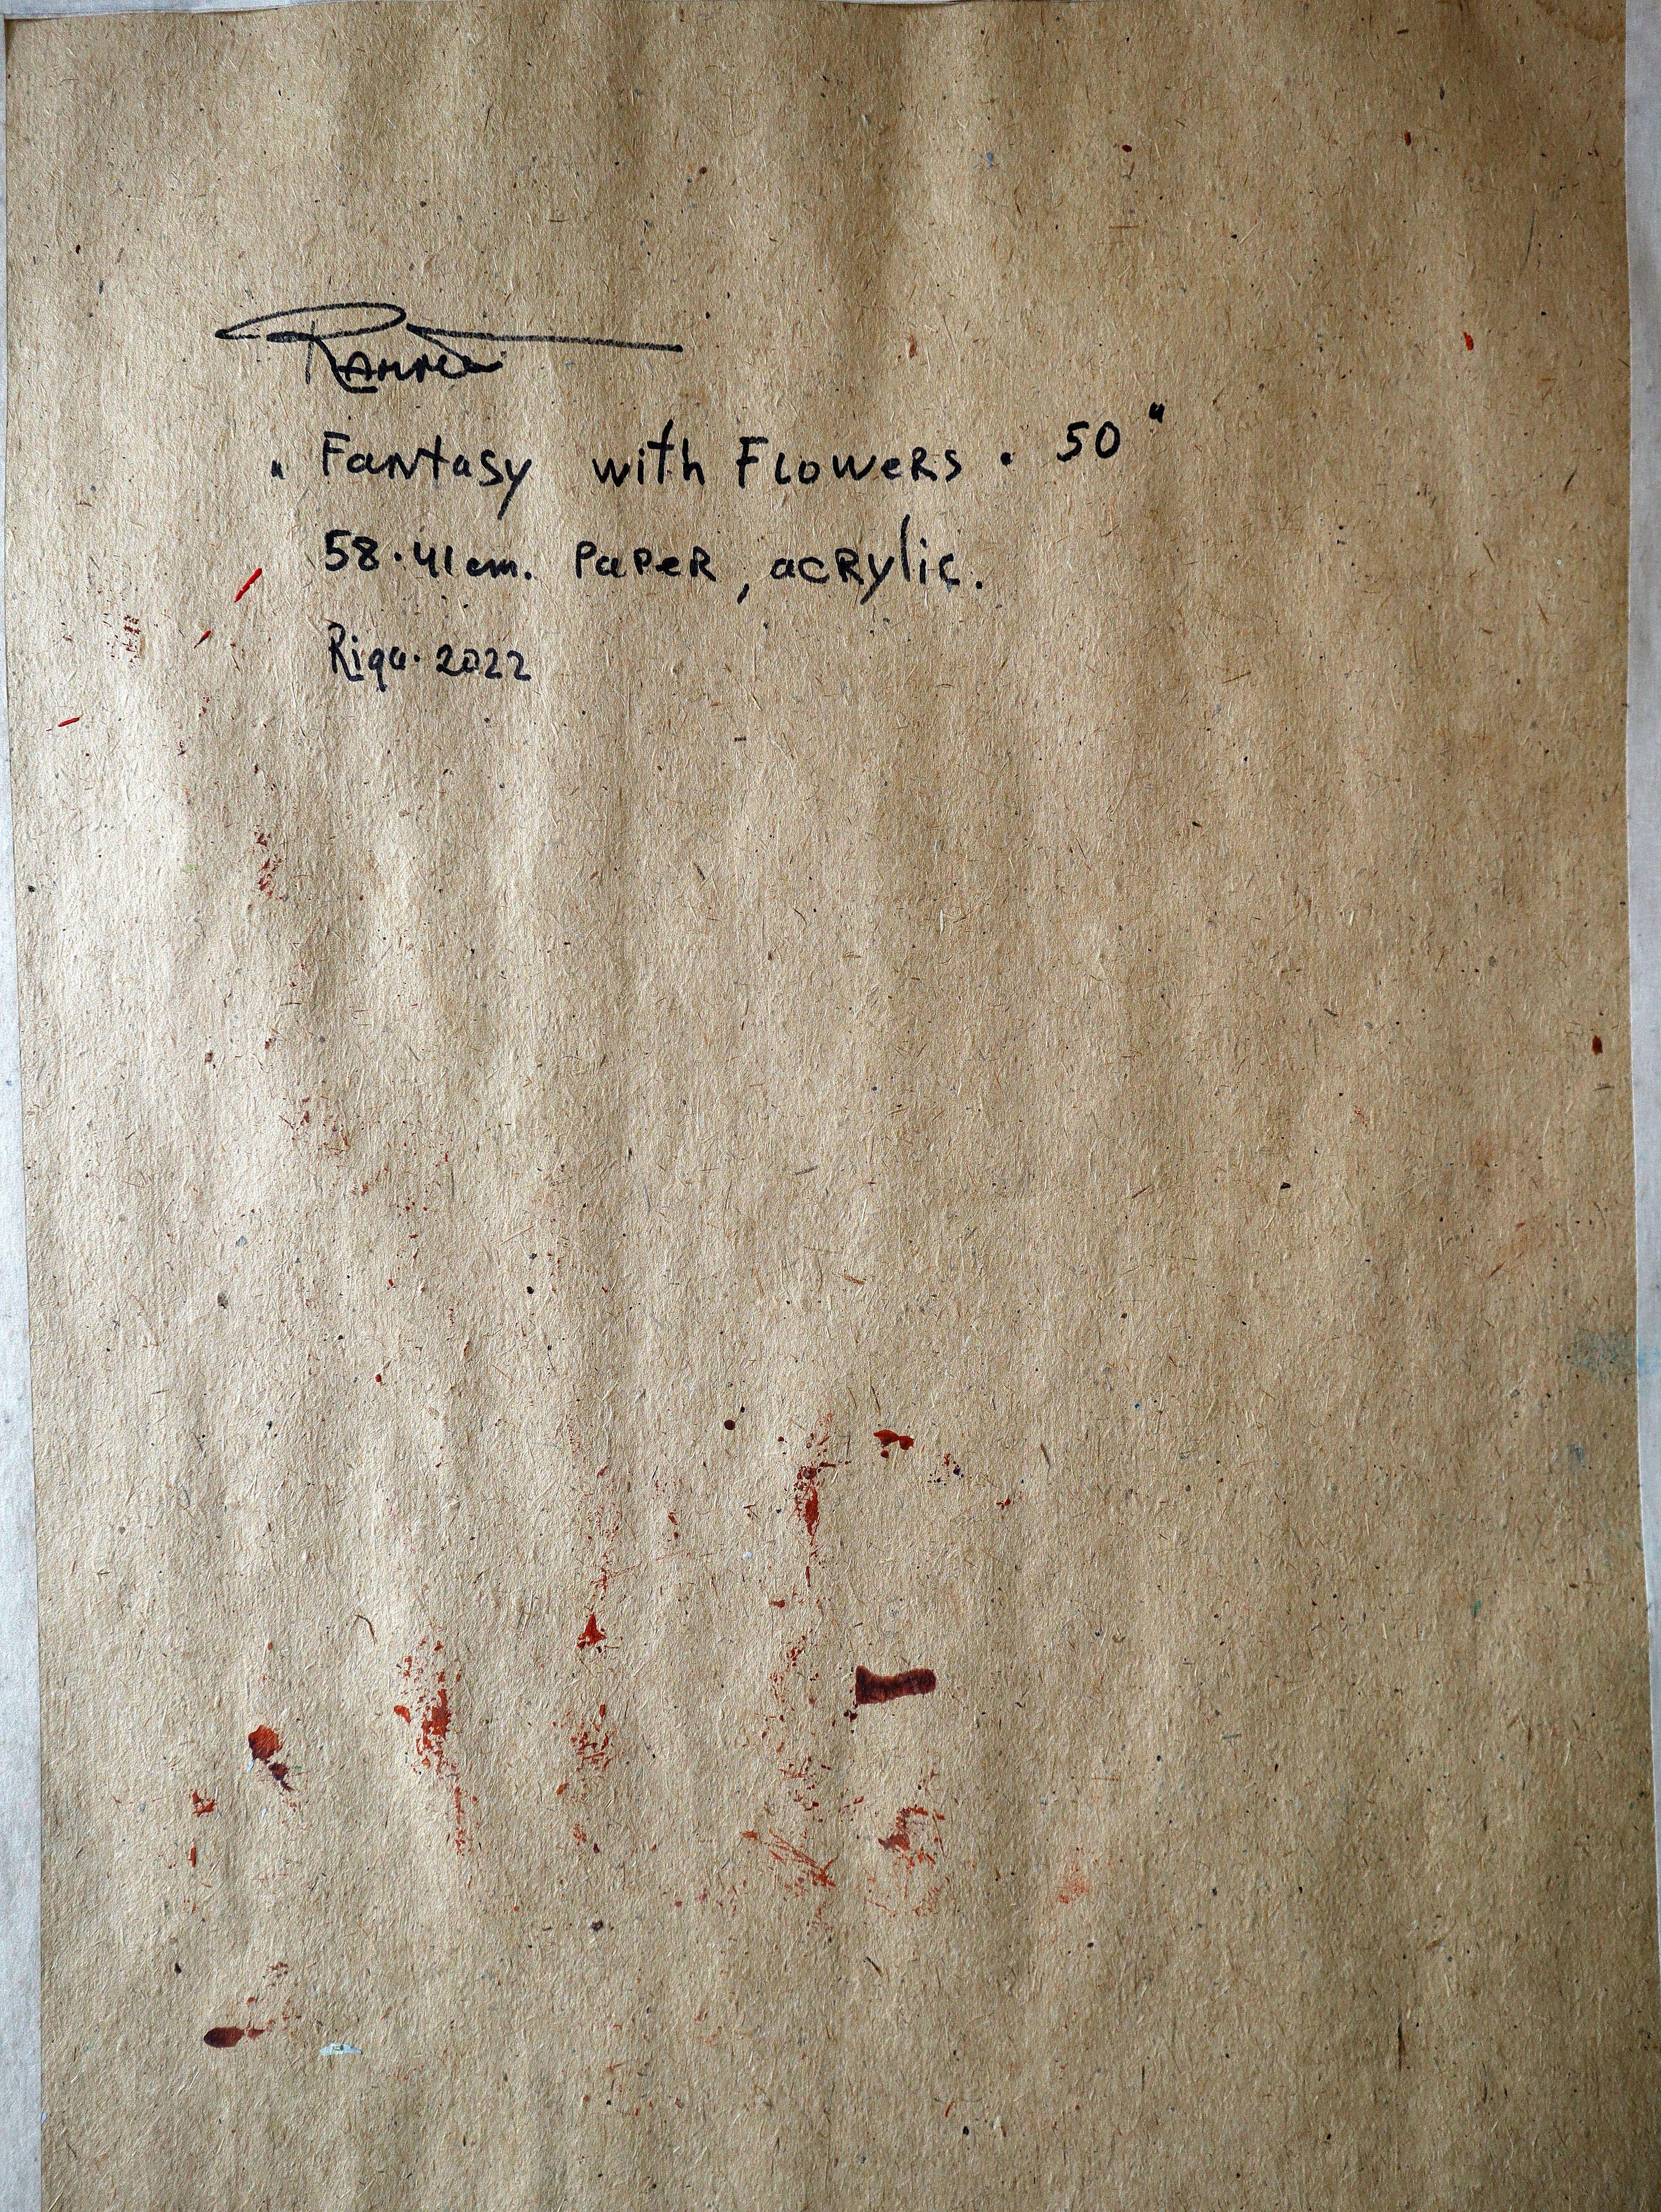 „Fantasy with Flowers. 50“
58.41cm. Paper, acrylic.
Riga. 2022